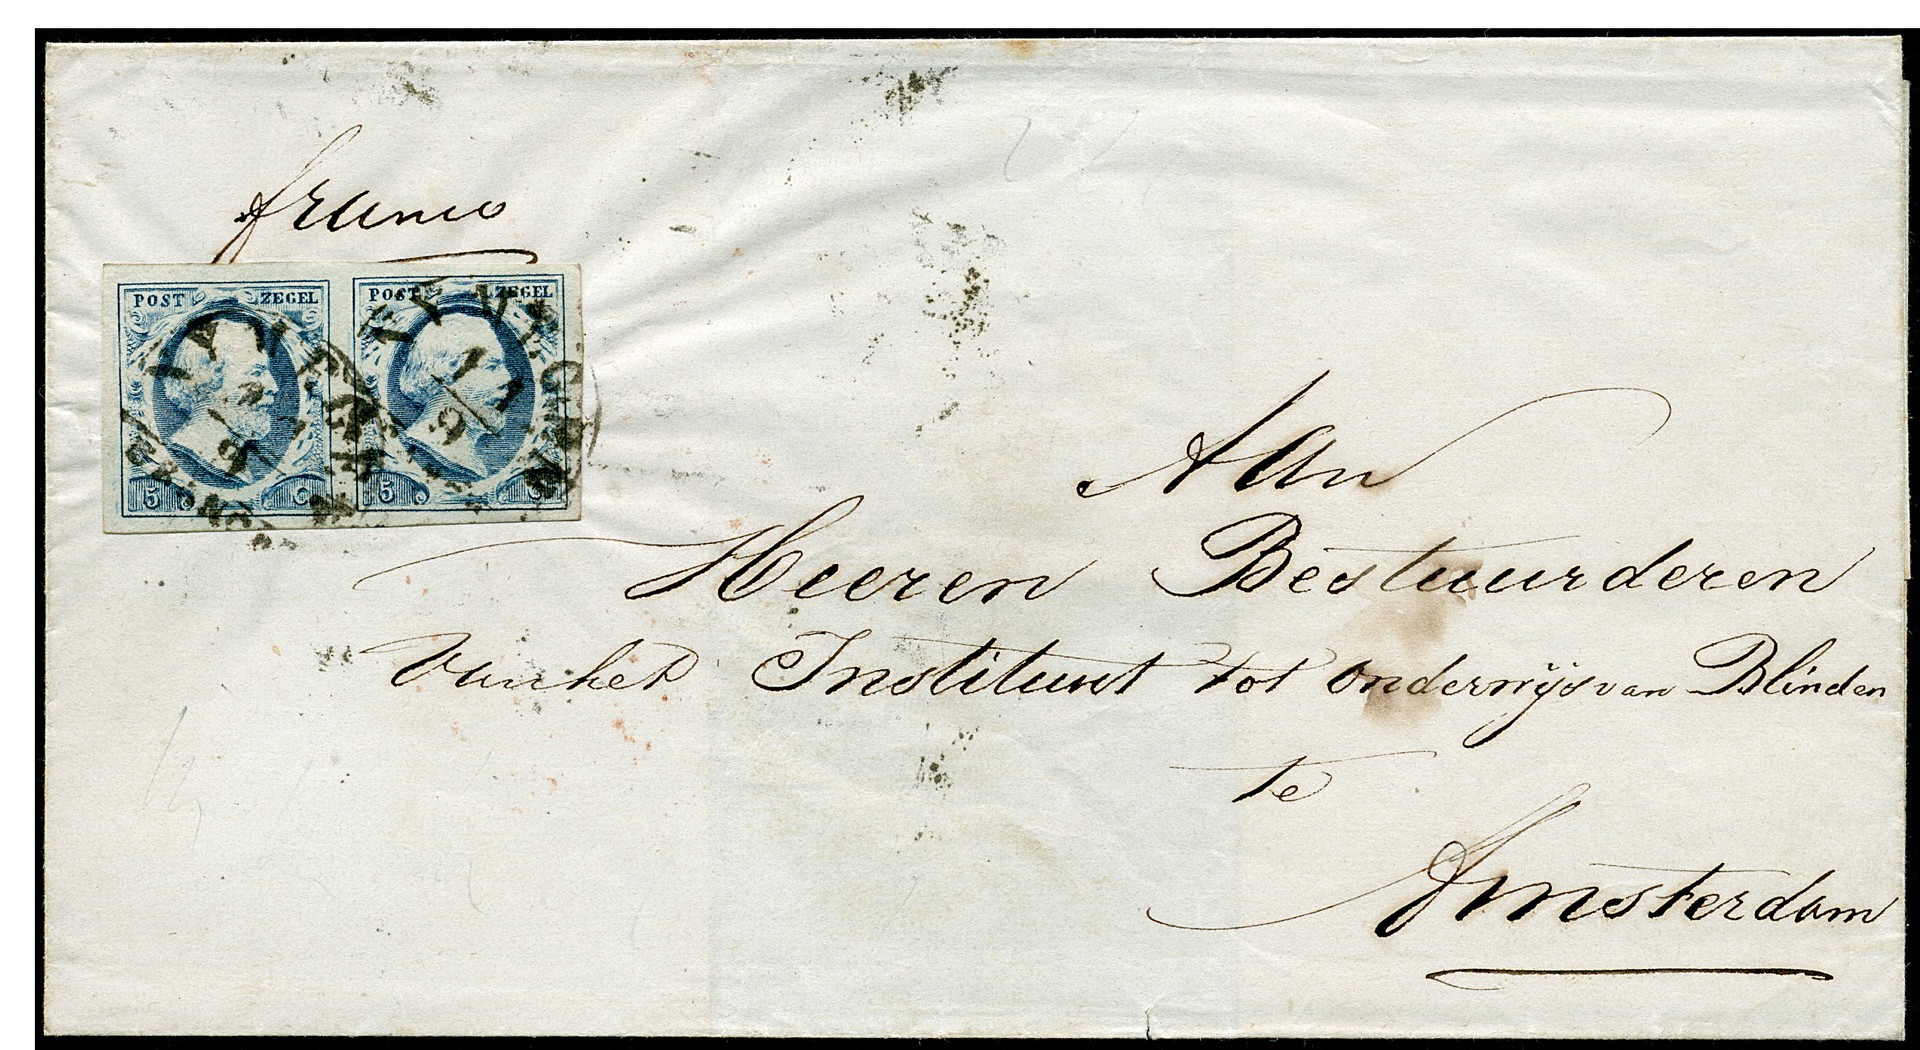 franco
POST ZEGEL POST ZEGEL
5 C 5 C
Aan
Heeren Bestuurderen
van het Instituut tot onderwijs van Blinden
te
Amsterdam